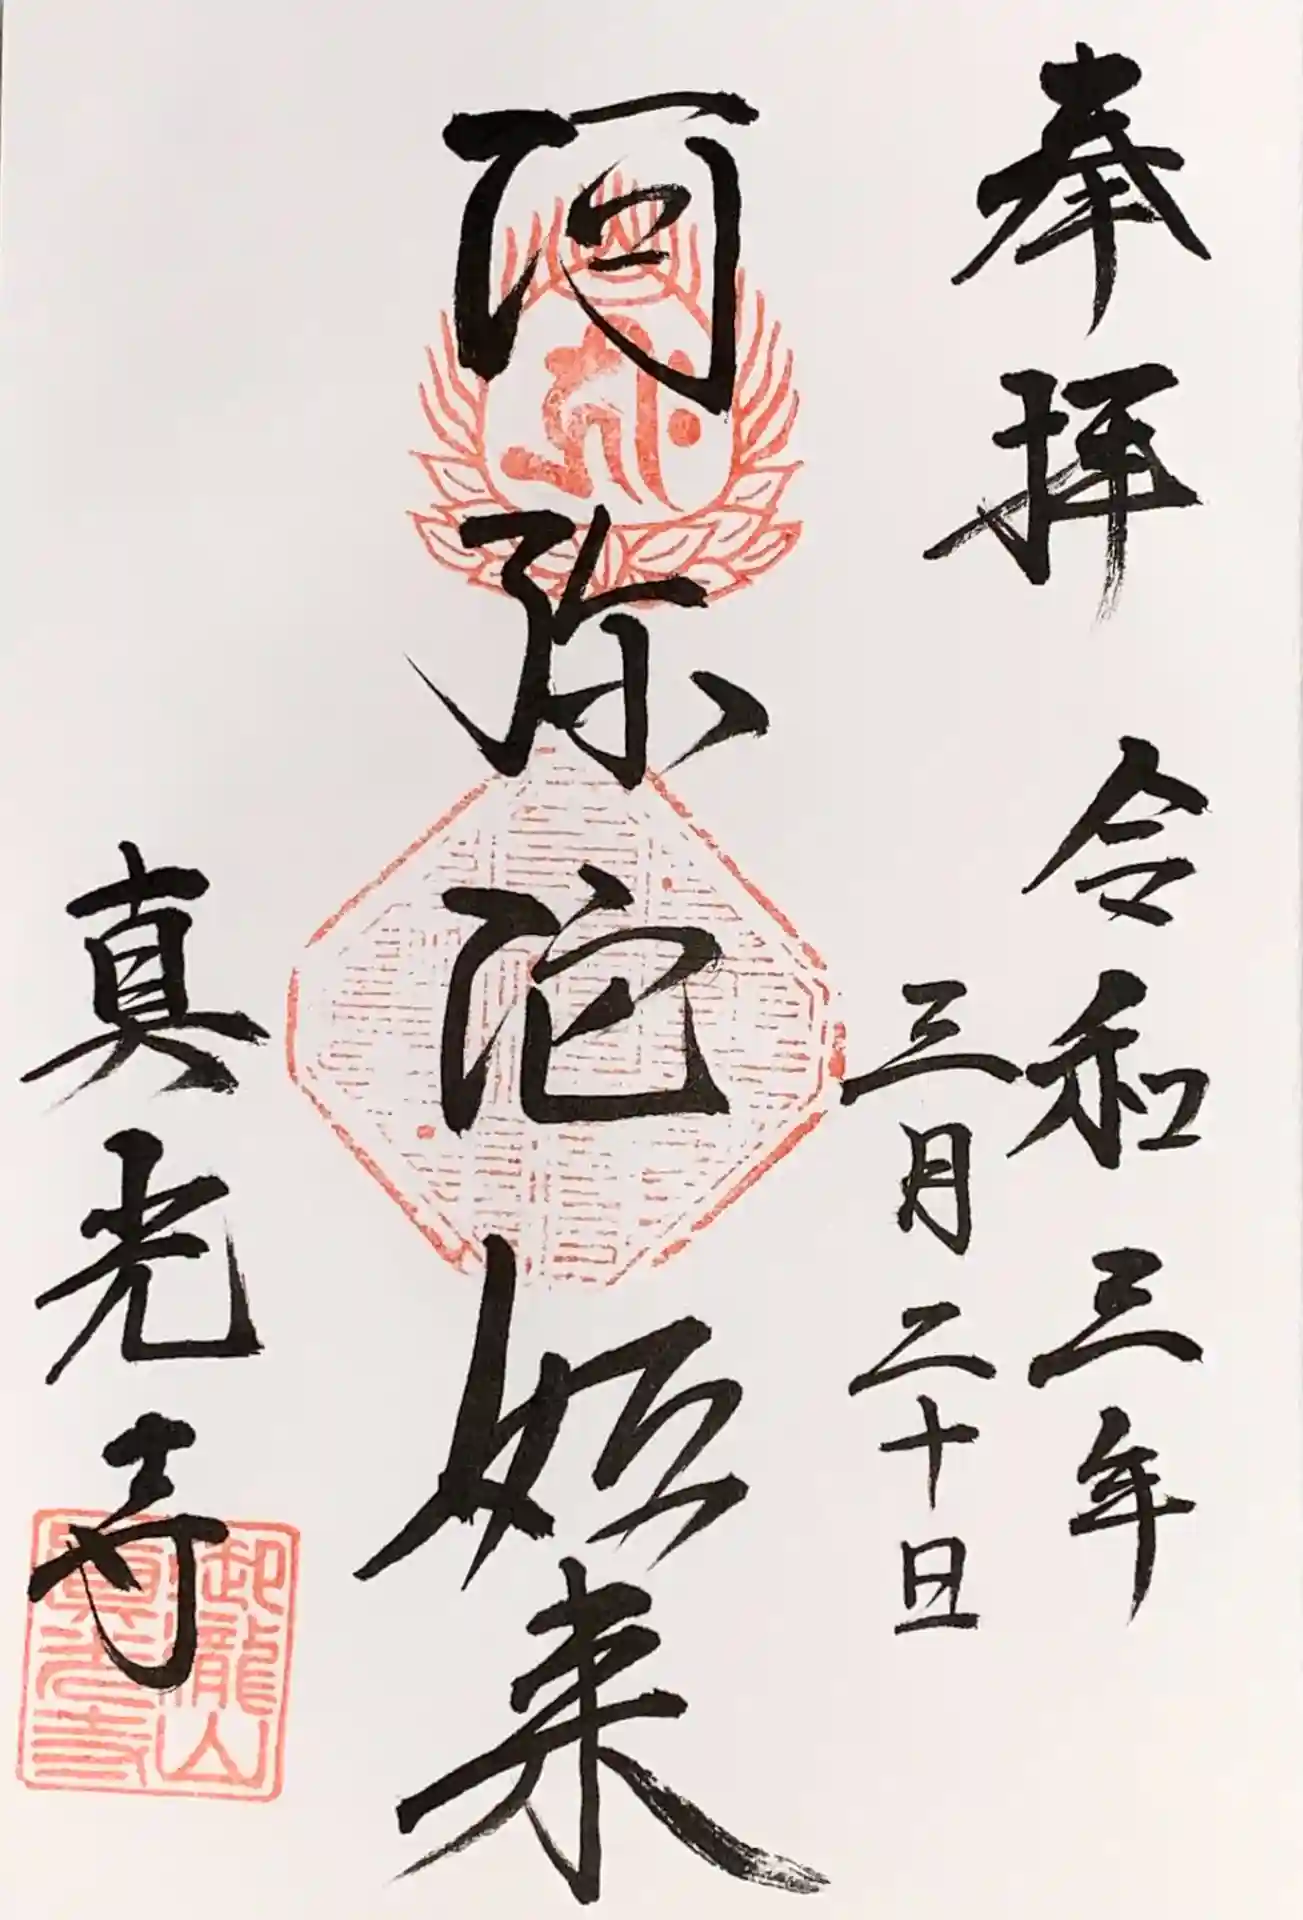 奉拝
令和三年
三月二十日
阿弥陀如来
真光寺
御瀧山
真光寺